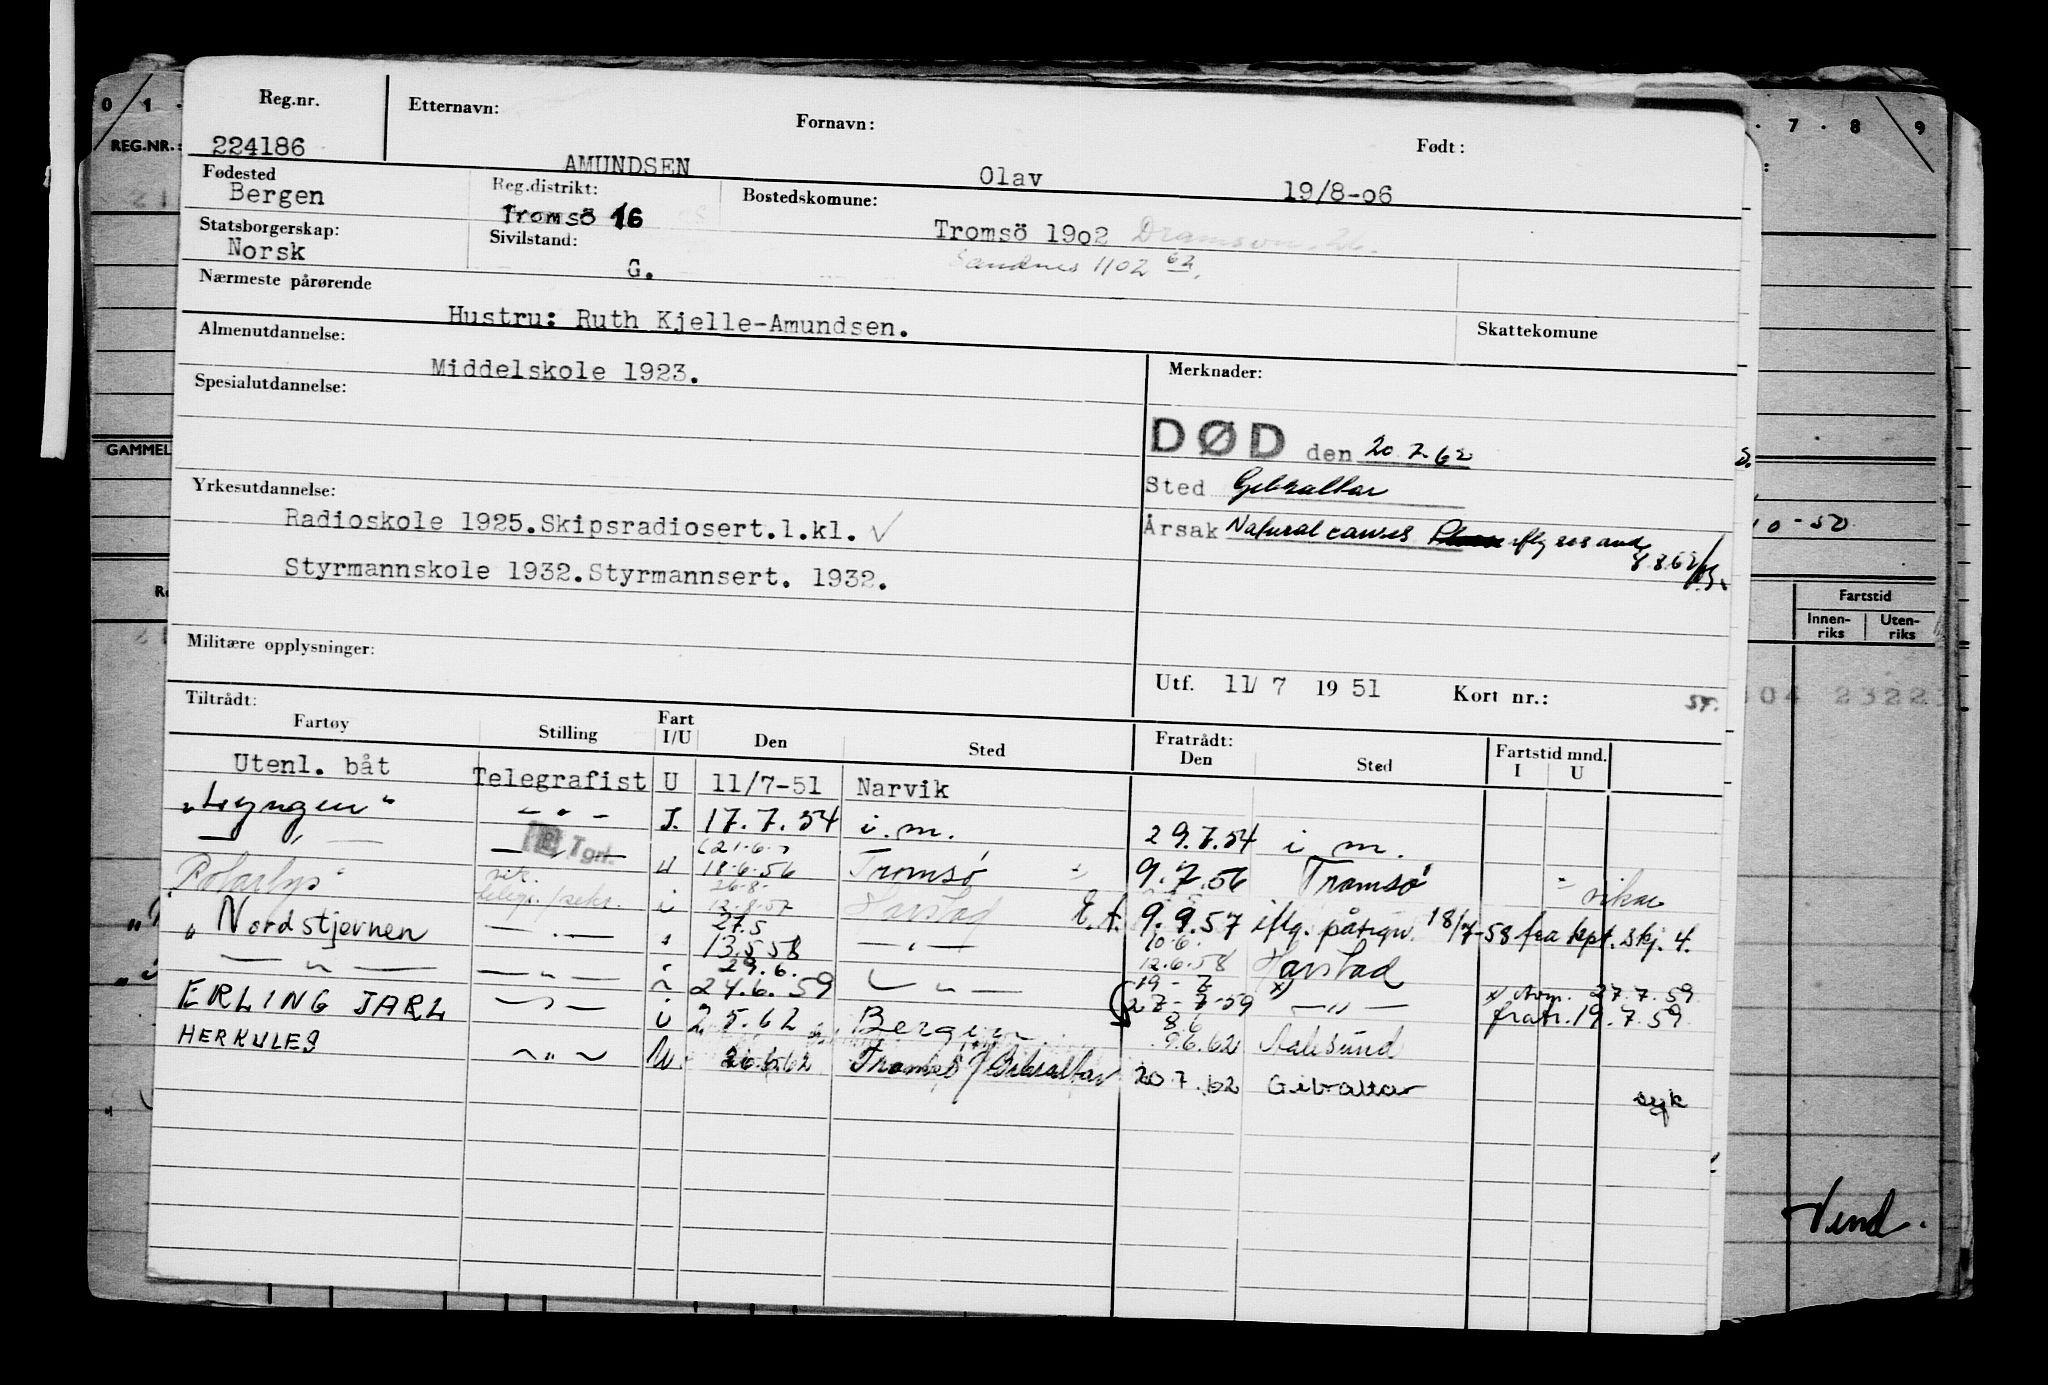 0 1 . 7 . 8 9
REG.NR.:
Reg.nr. Etternavn: Fornavn: Født:
224186 AMUNDSEN Olav 19/8-o6
Fødested Reg.distrikt: Bostedskomune:
Bergen Tromsö 16 Tromsö 19o2
Statsborgerskap: Sivilstand: Sandnes 1102 62
Norsk G.
Nærmeste pårørende
Hustru: Ruth Kjelle-Amundsen. Skattekomune
Almenutdannelse:
Middelskole 1923. Merknader:
Spesialutdannelse:
GAMMEL
DØD den 20.7.62
Sted Gibraltar
Årsak Natural causes iflg
Yrkesutdannelse:
Radioskole 1925. Skipsradiosert.1.kl. ✓
10-50
Styrmannskole 1932. Styrmannsert. 1932.
Fartstid
Innen-riks Uten-riks
Militære opplysninger:
Utf. 11/ 7 19 51 Kort nr.:
Tiltrådt:
Fartøy Stilling Fart I/U Den Sted Fratrådt: Den Sted Fartstid mnd. I U
Utenl. båt Telegrafist U 11/7-51 Narvik
"Lyngen" - " - I. 17.7.54 i.m. 29.7.54 i m.
— " — Tgrf. (21.6.) 18.6.56 Tromsø 9.7.56 Tromsø vikar
Polarlys" vik. telegr./sekr. i 26.8. 12.8.57 Harstad E.A. 9.9.57 iflg. påtegn. 18/7-58 fra kpt. skj. 4.
"Nordstjernen — " — 27.5 13.5.58 — " — 10.6. 12.6.58 Harstad
— " — — " — 29.6. 24.6.59 — " — 19-7 27-7-59 x) — " — x) 27.7.59
ERLING JARL — " — i 2.5.62 Bergen 8.6 9.6.62 Aalesund fratr. 19.7.59
HERKULES ~ " ~ U. 26.6.62 Tromsø / Gibraltar 20.7.62 Gibraltar syk
Vend.